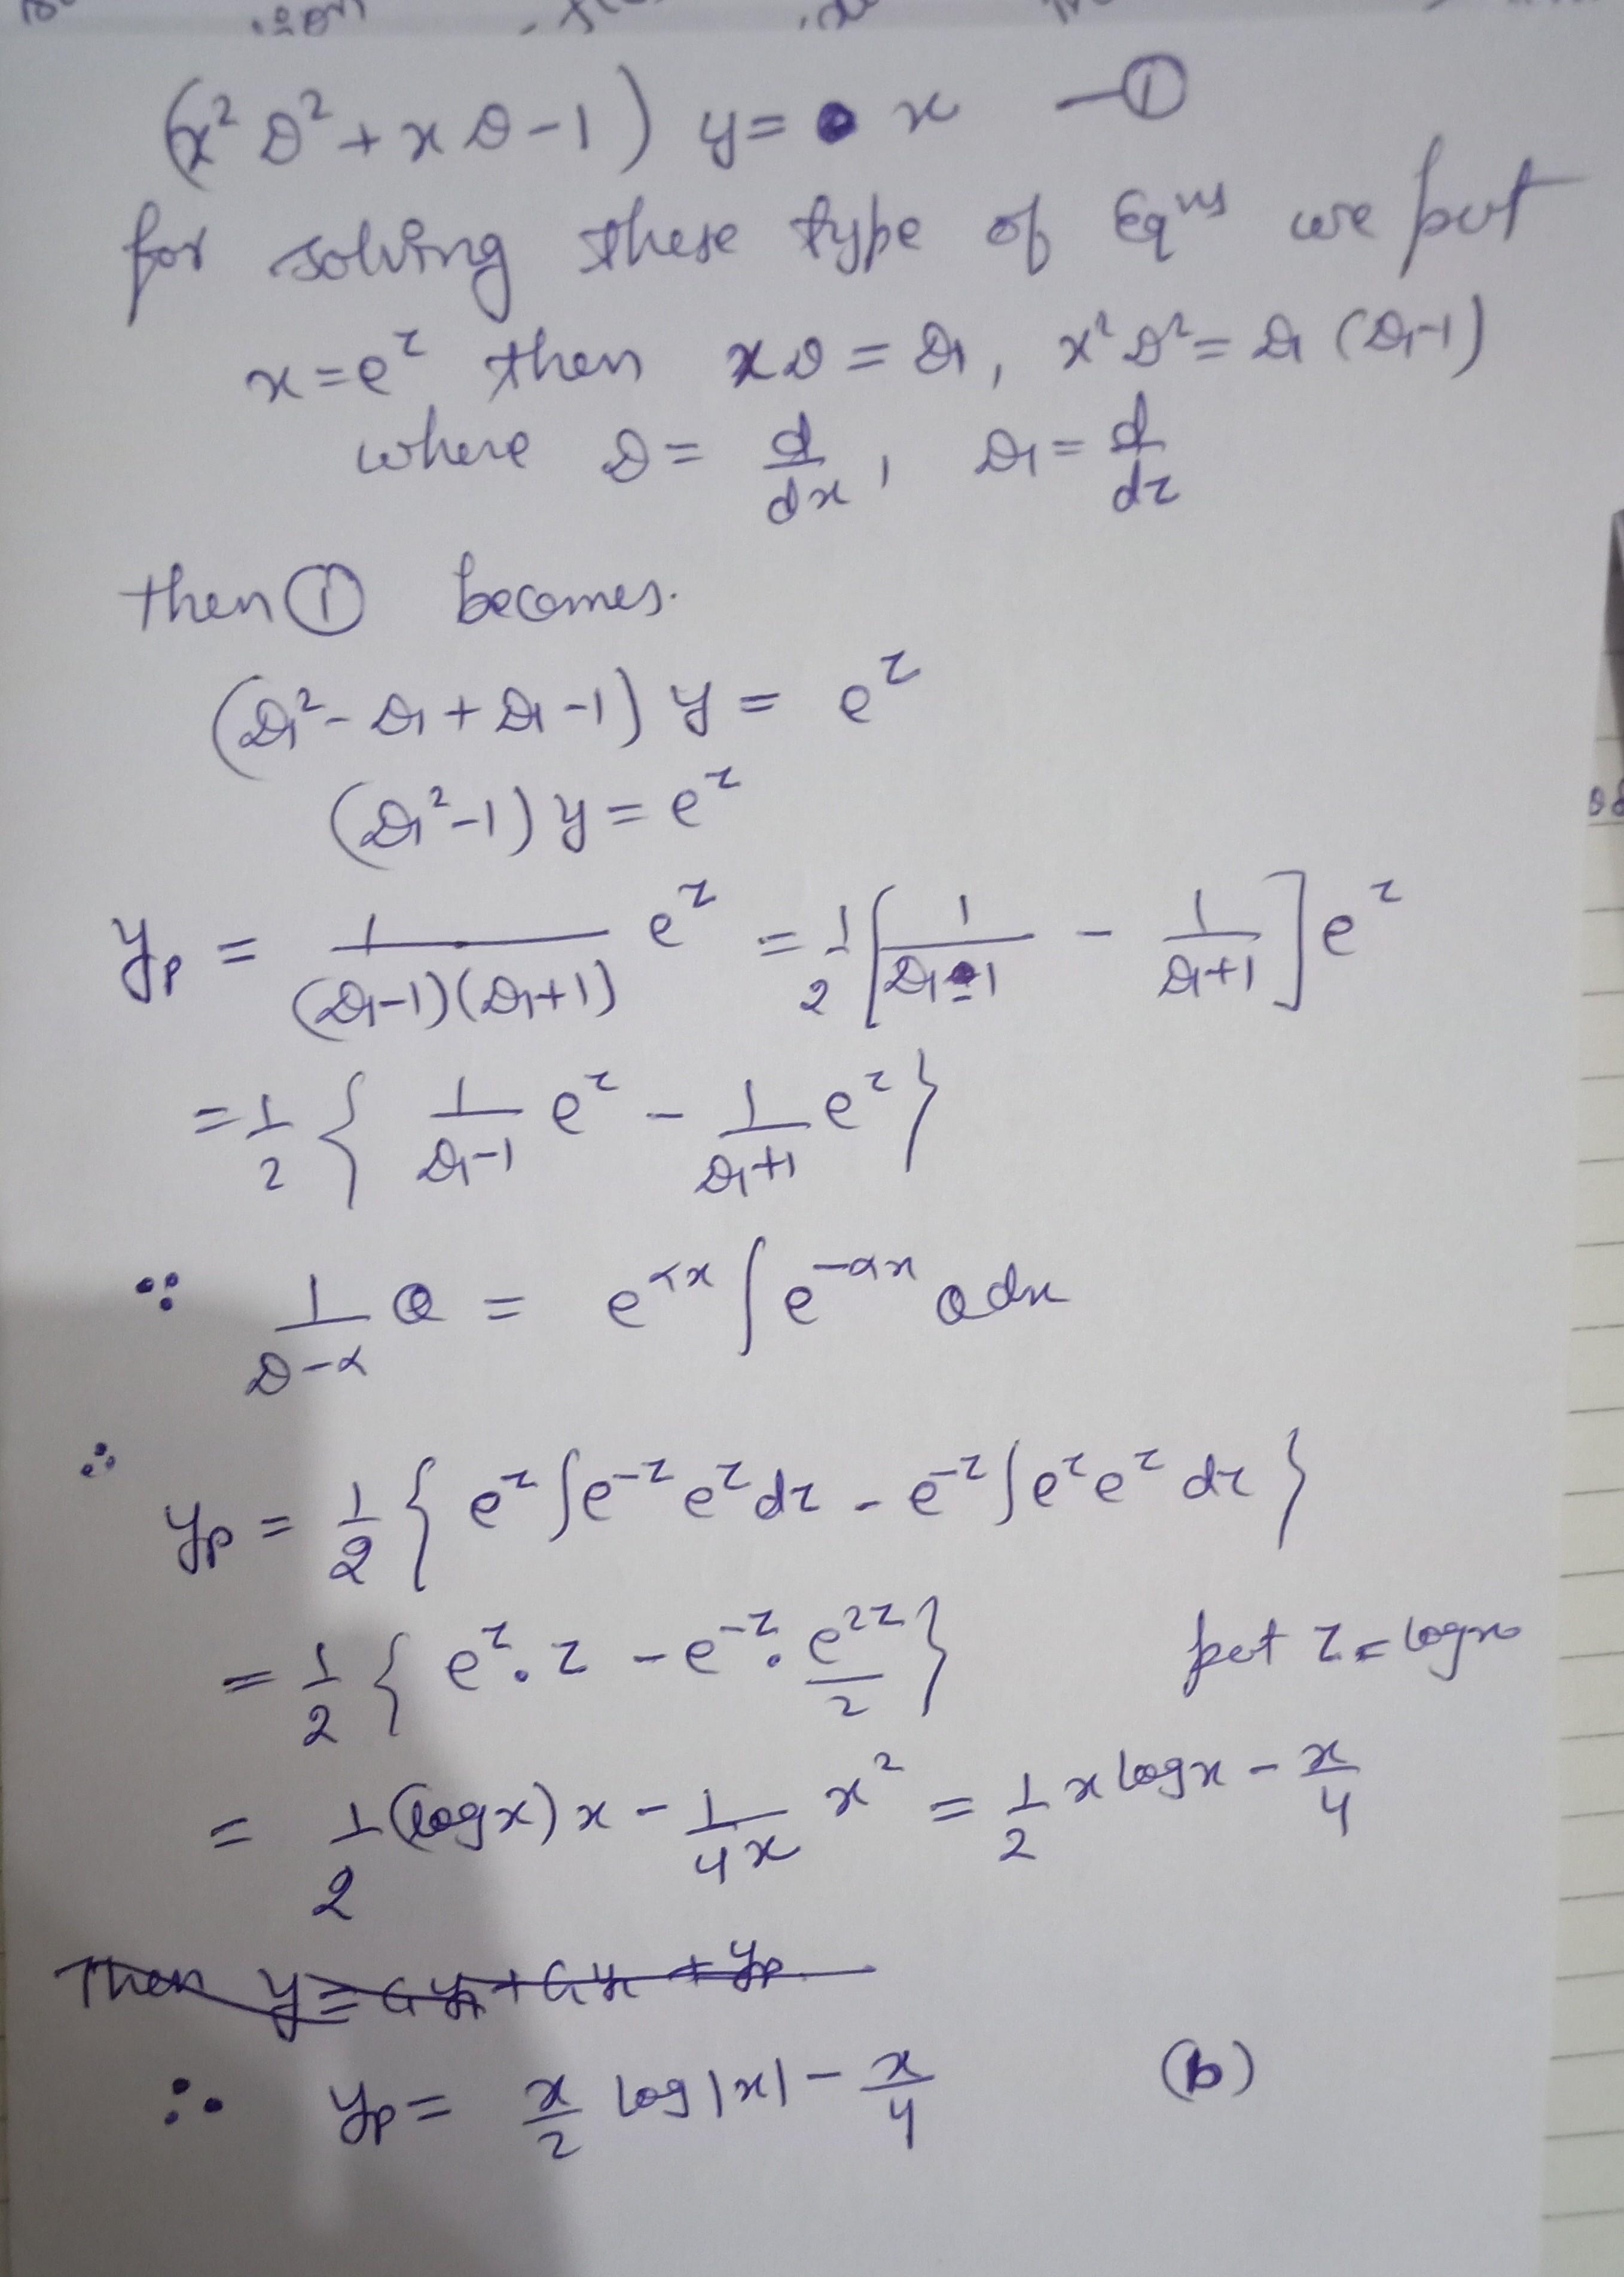 (x² D² + x D - 1) y = x — ①
for solving these type of Eqⁿˢ we put
x = e^z then xD = D₁, x² D² = D₁ (D₁-1)
where D = d/dx, D₁ = d/dz
then ① becomes.
(D₁² - D₁ + D₁ - 1) y = e^z
(D₁² - 1) y = e^z
y_p = 1/((D₁-1)(D₁+1)) e^z = 1/2 [1/(D₁-1) - 1/(D₁+1)] e^z
= 1/2 { 1/(D₁-1) e^z - 1/(D₁+1) e^z }
∵ 1/(D-α) Q = e^{αx} ∫ e^{-αx} Q dx
∴ y_p = 1/2 { e^z ∫ e^{-z} e^z dz - e^{-z} ∫ e^z e^z dz }
= 1/2 { e^z . z - e^{-z} . e^{2z}/2 } put z = log x
= 1/2 (log x) x - 1/(4x) x² = 1/2 x log x - x/4
∴ y_p = x/2 log |x| - x/4 (b)